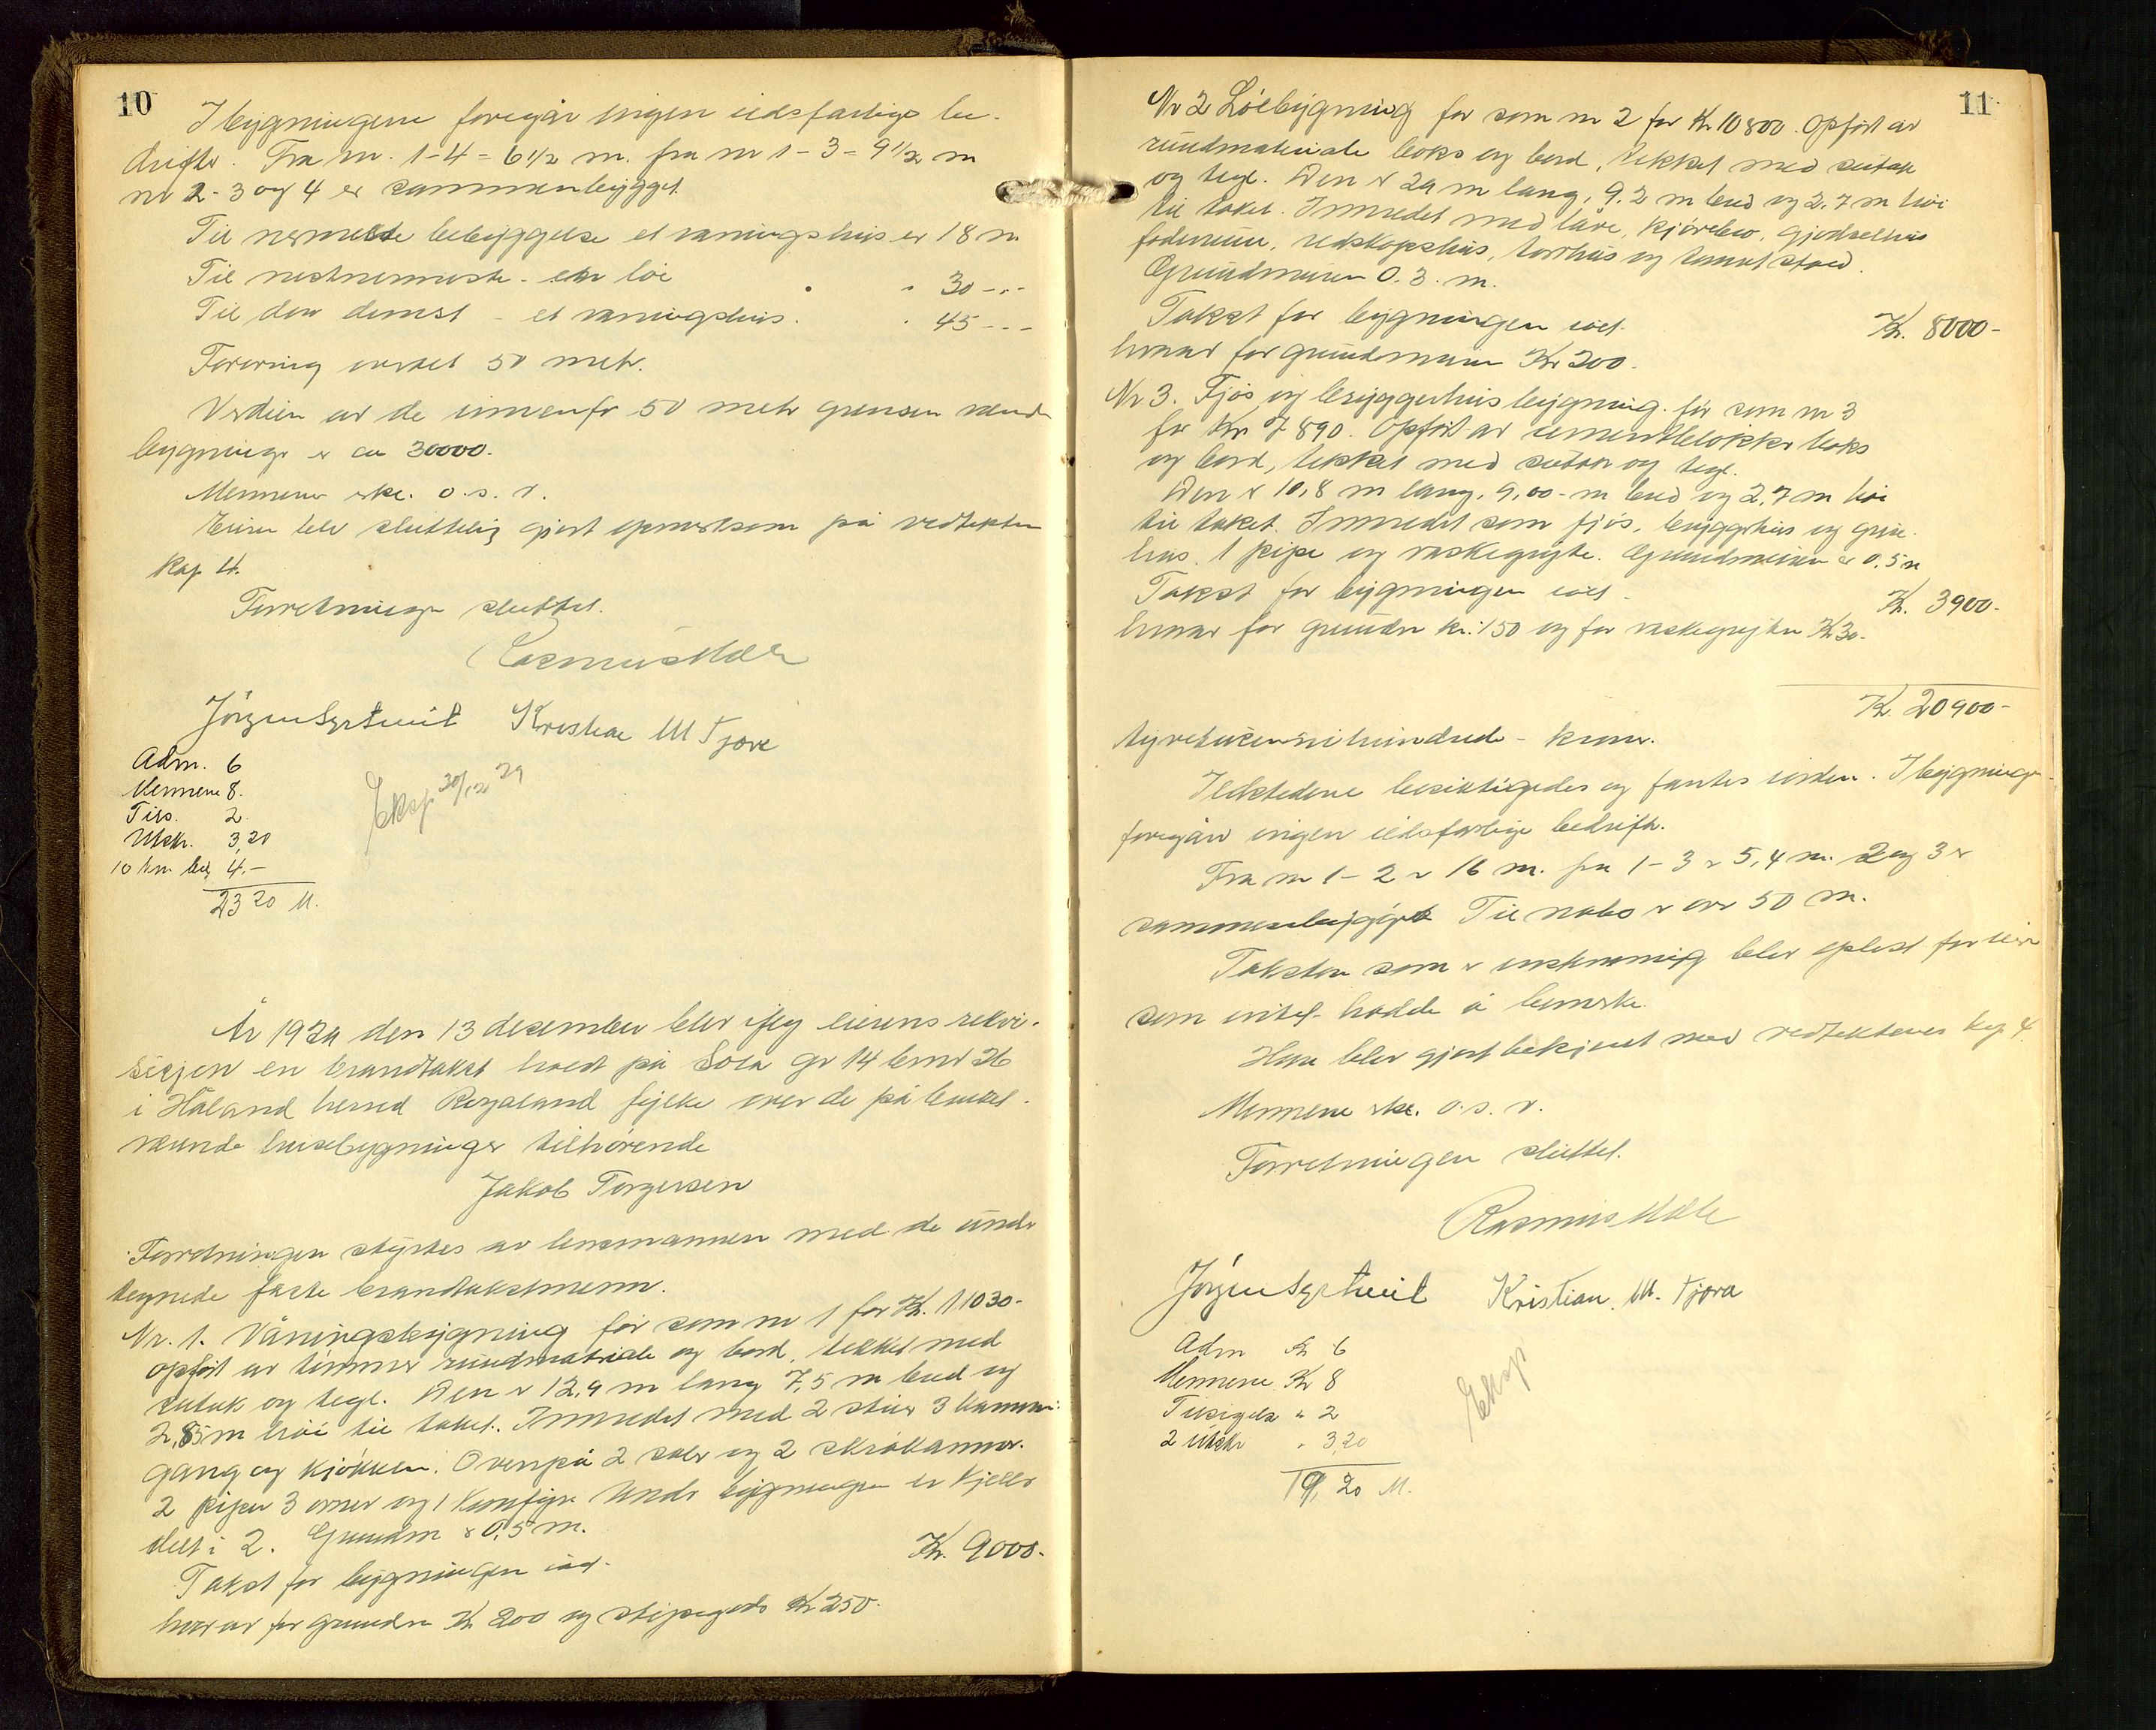 10
I bygningene foregår ingen ildsfarlige be-
drifter. Fra nr. 1-4 = 6 1/2 m. fra nr 1-3 = 9 1/2 m
nr 2-3 og 4 er sammenbygget.
Til nermeste bebyggelse et våningshus er 18 m
Til nestnermeste - en löe " 30 - " -
Til den dernest - et våningshus. " 45 - - -
Forøvrig onskel 50 metr.
Verdien av de innenfor 50 metr grensen værende
bygninger er ca 30000.
Mennene erkl. o. s. v.
Eieren blev sluttelig gjort opmerksom på vedtekten
kap 4.
Forretningen sluttet.
Rasmus Mæle
Jörgen Syrtveit Kristian M Tjora
Adm. 6
Mennene 8.
Tils. 2
Utskr. 3,20
10 km bil 4.-
23 20 M.
Eksp 30/12 29
År 1929 den 13 desember blev iflg eierens rekvi-
sisjon en branntakst holdt på Sola gr 14 brnr 26
i Håland herred Rogaland fylke over de på bruket
værende husebygninger tilhörende
Jakob Torgersen
Forretningen styrtes av lensmannen med de under
tegnede faste branntakstmenn.
Nr. 1. Våningsbygning för som nr 1 for Kr. 11030-
opfört av timmer rundmateriale og bord, tekket med
sutak og tegl. Den er 12,9 m lang 7,5 m bred og
2,85 m höi til taket. Innredet med 2 stuer 3 kammer
gang og kjökken. Ovenpå 2 saler og 2 skråkammer.
2 piper 3 ovner og 1 komfyr. Under bygningen er kjeller
delt i 2. Grundm er 0,5 m.
Takst for bygningen idet. Kr. 9000.-
hvorav for grundm Kr 200 og støpegods Kr 250.
11
Nr 2 Löebygning för som nr 2 for Kr 10800. Opfört av
rundmateriale boks og bord, tekket med sutak
og tegl. Den er 29 m lang, 9,2 m bred og 2,7 m höi
til taket. Innredet med låve, kjörebro, gjødselhus
foderrum, redskapshus, torvhus og tomat stæd.
Grundmuren 0.3. m.
Takst for bygningen idet. Kr. 8000-
hvorav for grundmuren Kr 200.
Nr 3. Fjös og bryggerhusbygning för som nr 3
for Kr 7890. Opfört av sementblokker boks
og bord, tekket med sutak og tegl.
Den er 10,8 m lang, 9,00 m bred og 2,7 m höi
til taket. Innredet som fjös, bryggerhus og grise-
hus. 1 pipe og vaskegryte. Grundmuren er 0,5 m
Takst for bygningen idet - Kr. 3900.-
hvorav for grundm kr. 150 og for vaskegryten Kr 30.-
Kr. 20900-
tyvetusennihundrede - kroner.
Ildstedene besiktigedes og fantes iorden. I bygningene
foregår ingen ildsfarlige bedrifter.
Fra nr 1-2 er 16 m. fra 1-3 er 5,4 m. 2 og 3 er
sammenbygget Til nabo er over 50 m.
Taksten som er enstemmig blev oplest for eieren
som intet hadde å bemerke.
Han blev gjort bekjent med vedtektenes kap 4.
Mennene erkl. o. s. v.
Forretningen sluttet.
Rasmus Mæle
Jörgen Syrtveit Kristian. M. Tjora
Adm Kr 6
Mennene Kr 8
Tilsigelse " 2
2 utskr " 3,20
19,20 M.
Eksp